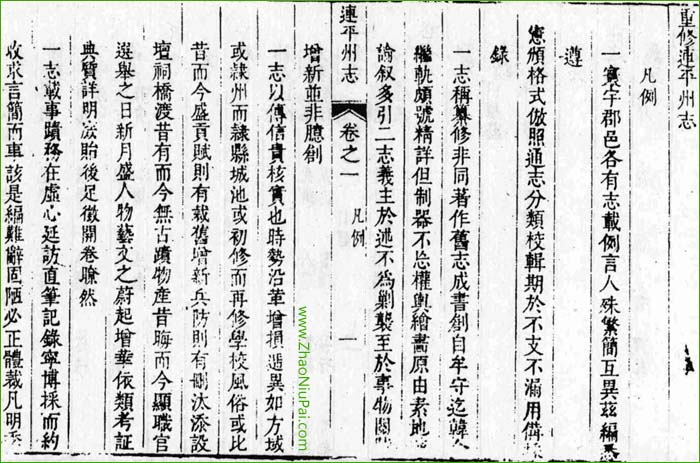 重修連平州志
凡例
一寰宇郡邑各有志載例言人殊繁簡互異茲編
遵
憲頒格式倣照通志分類校輯期於不支不漏用備
錄
一志稱纂修非同著作舊志成書創自牟守迄韓
繼軌頗號精詳但制器不忘權輿繪畫原由素地
論叙多引二志義主於述不為剿襲至於事物
連平州志 卷之一 凡例 一
增新並非臆創
一志以傳信貴核實也時勢沿革增損遞異如方域
或隸州而隸縣城池或初修而再修學校風俗或比
昔而今盛貢賦則有裁舊增新兵防則有刪汰添設
壇祠橋渡昔有而今無古蹟物產昔晦而今顯職官
選舉之日新月盛人物藝文之蔚起增華依類考証
典實詳明湔貽後足徵開卷瞭然
一志載事蹟務在虛心延訪直筆記錄寧博採而約
收求言簡而事該是編雖辭固陋必正體裁凡明
www.ZhaoNiuPai.com